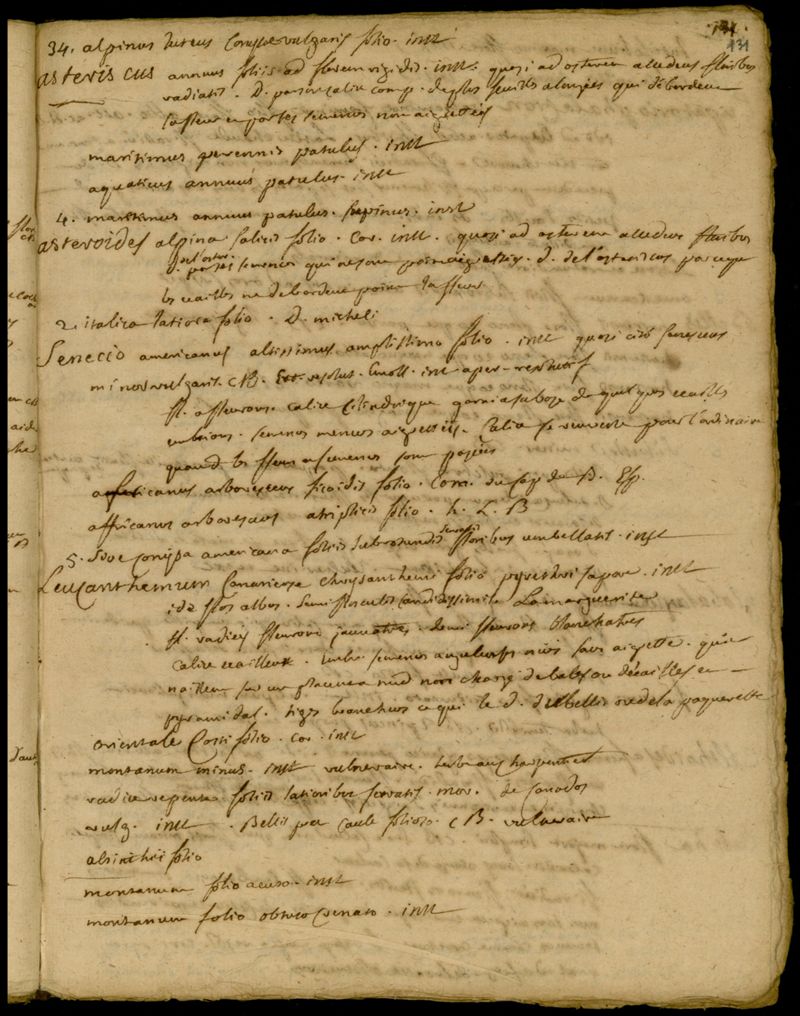 131
131
34. alpinus luteus Conysae vulgaris folio. inst
asteriscus annuus foliis ad florem rigidis. inst. quasi ad asterem alludens floribus
radiatis. D. par son calix comp. de plus feuilles alongées qui debordent
la fleur en portes semences non aigrettées
maritimus perennis patulus. inst
aquaticus annuus patulus. inst
4. maritimus annuus patulus. supinus. inst
asteroides alpina salicis folio. Cor. inst. quasi ad asterem alludens floribus
semences qui ne sont point aigrettées. d. de l'asteriscus parceque
les ecailles ne debordent point la fleur
2. italica latiore folio. D. micheli
Senecio americanus altissimus amplissimo folio. inst quasi cito senescens
minor vulgaris. CB. resolut. Emoll. int aper. resolutif
fl. a fleurons. calix cilindrique garni a sa base de quelques ecailles
embrions. semences menues aigrettées. Calix se renverse pour l'ordinaire
quand les fleurs a semences sont passées
affricanus arborescens ficoidis folio. Com. du cap de B. Esp.
affricanus arborescens atriplicis folio. h. L. B
5. sive Coniza americana foliis subrotundis serratis floribus umbellatis. inst
Leucanthemum Canariense chrysanthemi folio pyrethri sapore. inst
ide flos albus. Semiflosculis candidissimis La marguerite
fl. radiées fleurons jaunatres. demi fleurons blanchatres
Calix ecailleux. Embr. semences anguleuses sans aigrette. qui
naissent sur un placenta nud non chargé de bales ou d'écailles en
pyramidal. tiges branchues ce qui le d. du bellis ou de la paquerette
orientale Costi folio. cor. inst
montanum minus. inst vulneraire. herbe aux charpentiers
radice repente foliis latioribus serratis. mor. de Canados
vulg. inst. Bellis caule folioso. CB. vulneraire
absinthii folio
montanum folio acuto. inst
montanum folio obtuso crenato. inst